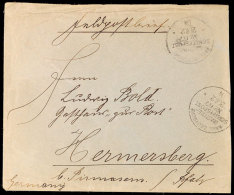 Feldpostbrief
Herrn
Ludwig Bold.
Gasthaus "zur Post"
Hermersberg
b. Pirmasens. Pfalz
Germany